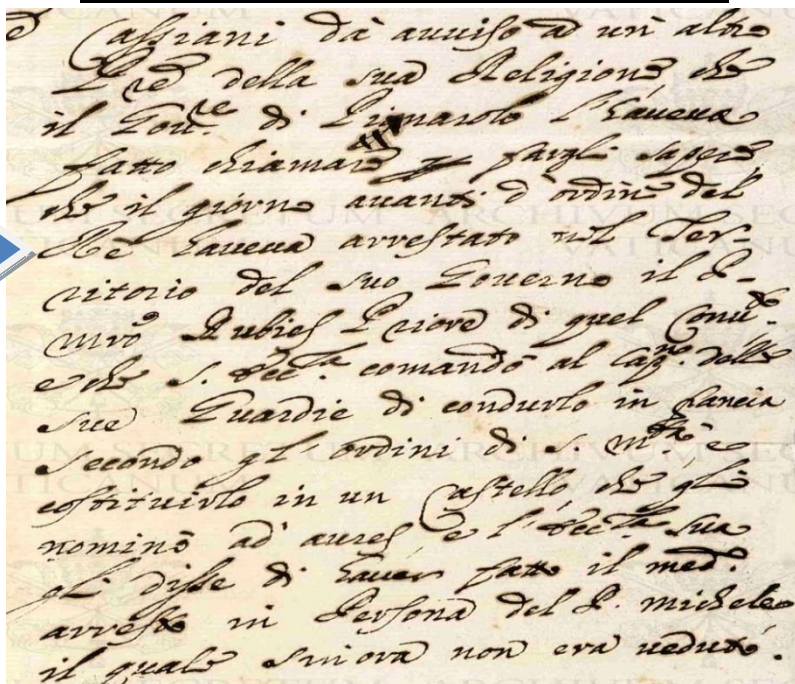 Cassiani dà auuiso ad un altro
P.re della sua Religione che
il Gou.re di Pignarolo l'haueua
fatto chiamare per fargli sapere
che il giorno auanti d'ordine del
Rè haueua arrestato nel Ter-
ritorio del suo Gouerno il P.
mrō Rubies Priore di quel Conu.to
e che S. Ecc.za comandò al Cap.no delle
sue Guardie di condurlo in Francia
secondo gl'ordini di S. M.tà e
costituirlo in un Castello, che gli
nominò ad aures e l'Ecc.za sua
gli disse di hauer fatto il med.o
arresto in Persona del P. Michele
il quale sin'ora non era ueduto.